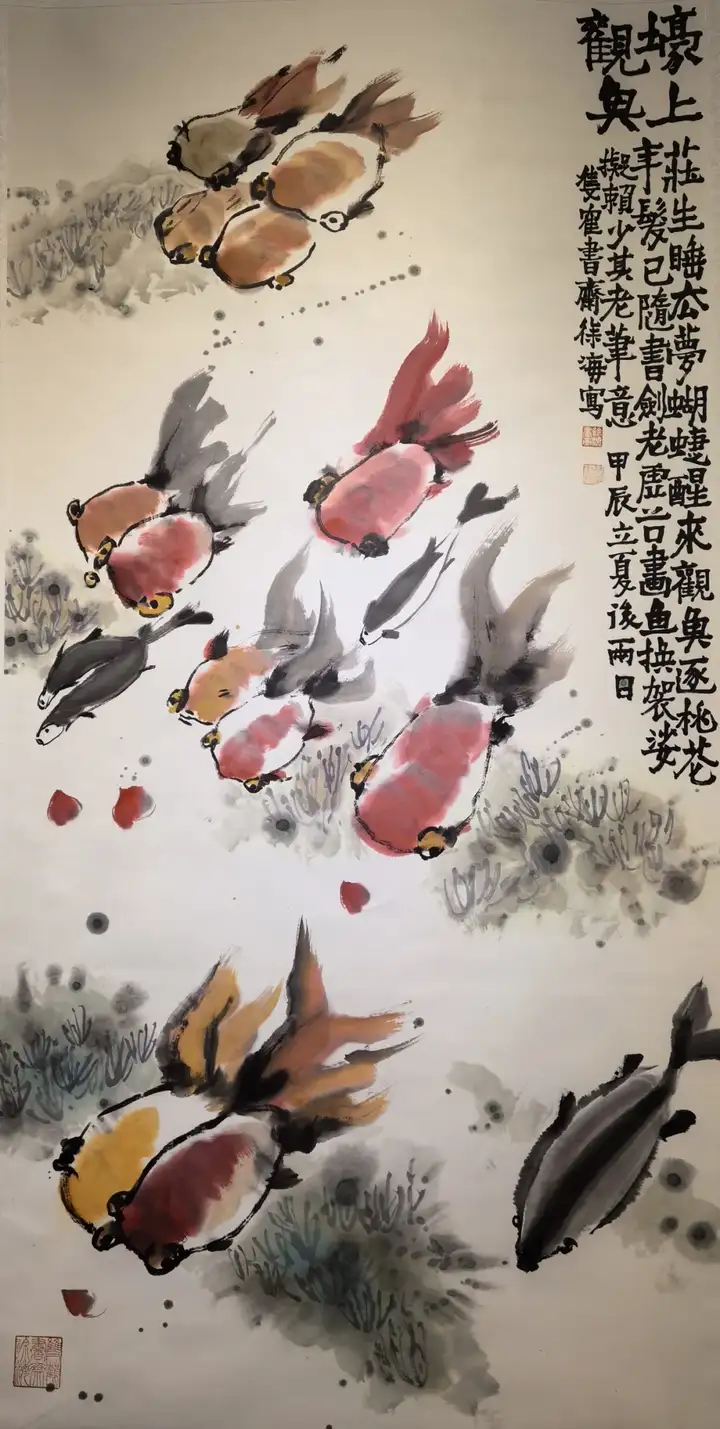 壕上
觀魚
莊生睡去夢蝴蝶醒來觀魚逐桃花
年髮已隨書劍老虛谷畫魚換袈娑
擬賴少其老筆意 甲辰立夏後兩日
隻寉書齋徐海寫